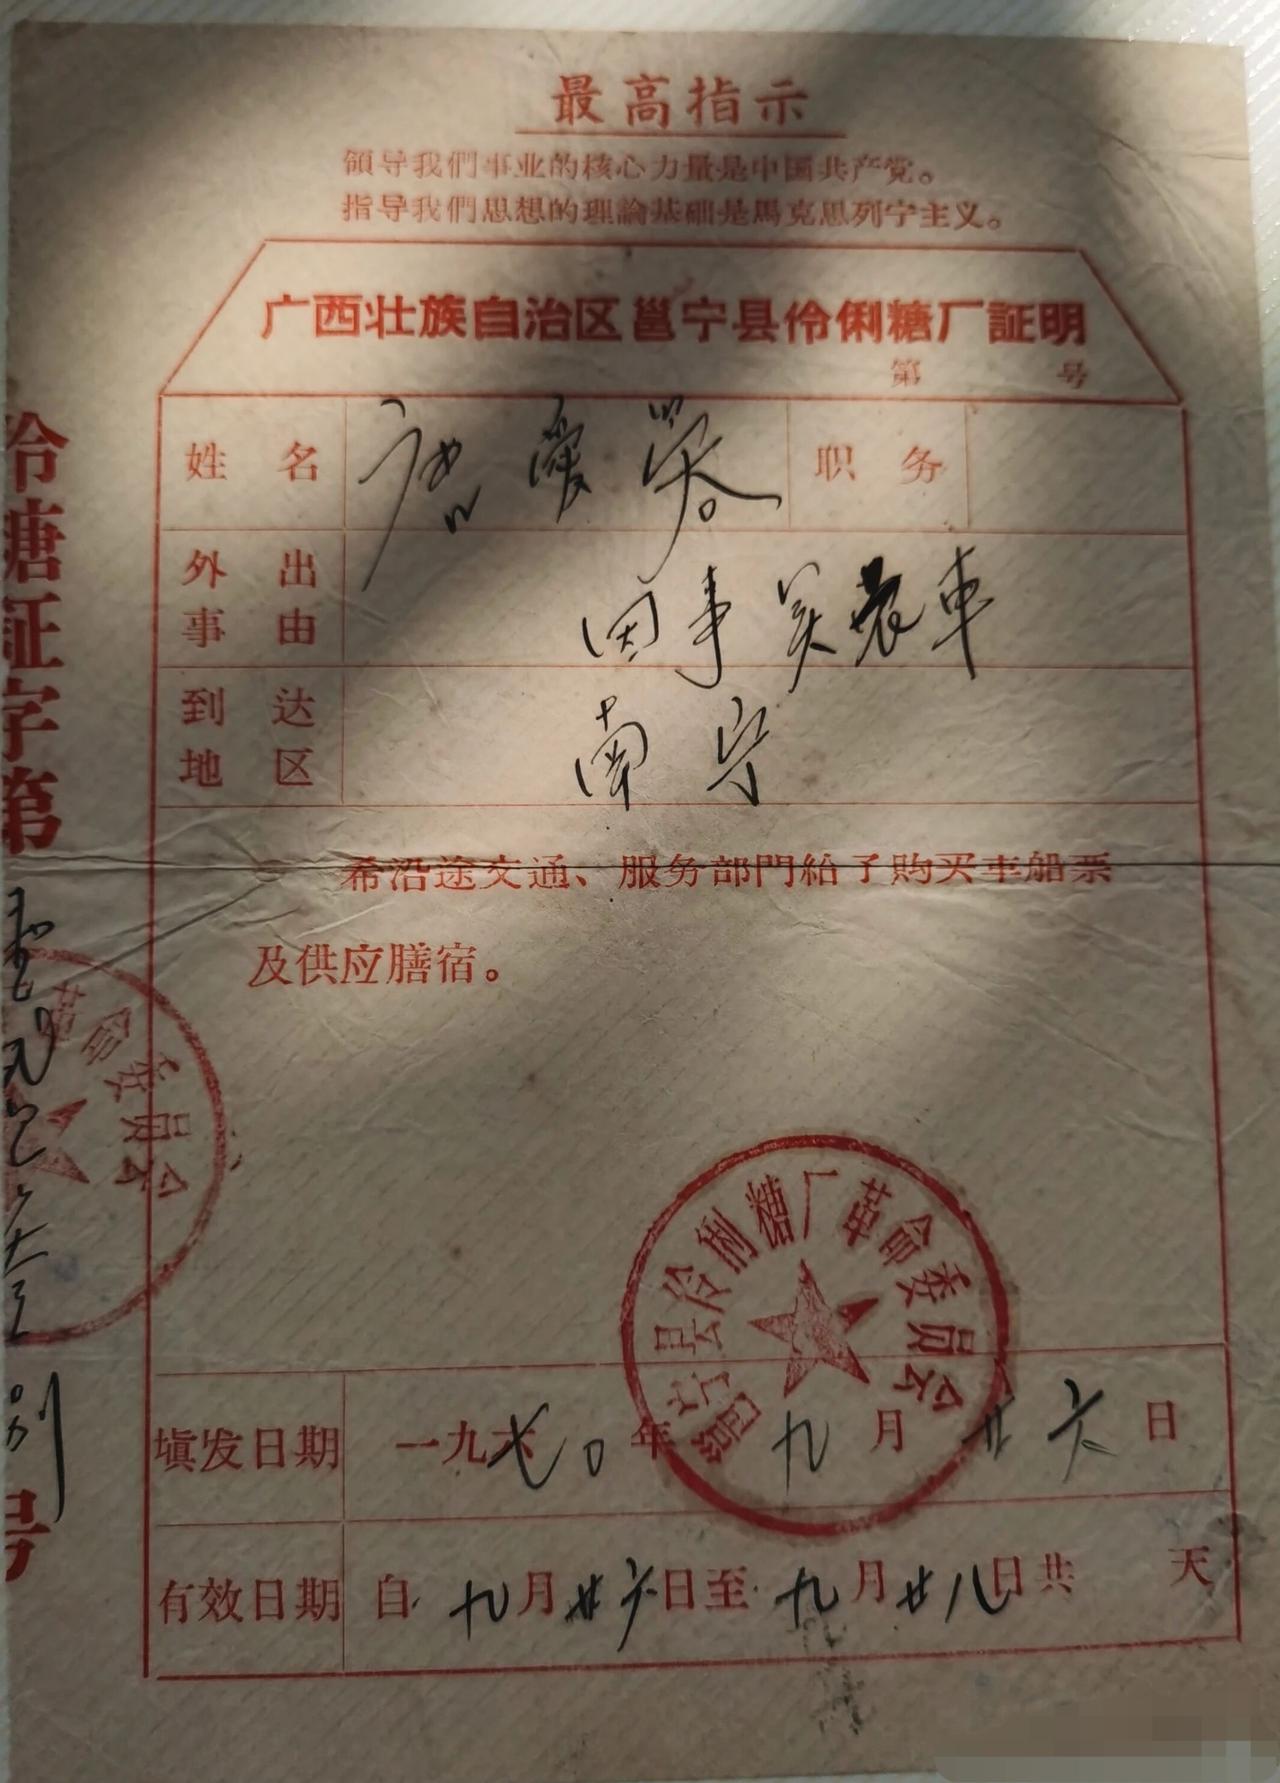 最高指示
領导我們事业的核心力量是中国共产党。
指导我們思想的理論基础是馬克思列宁主义。
广西壮族自治区邕宁县伶俐糖厂証明
第 号
姓名 唐爱答 职务
外出事由 因事 車
到达地区 南宁
希沿途交通、服务部門給予購买車船票
及供应膳宿。
邕宁县伶俐糖厂革命委員会
填发日期 一九七〇年九月廿六日
有效日期 自九月廿六日至九月廿八日共 天
伶糖証字第 号
革命委員会